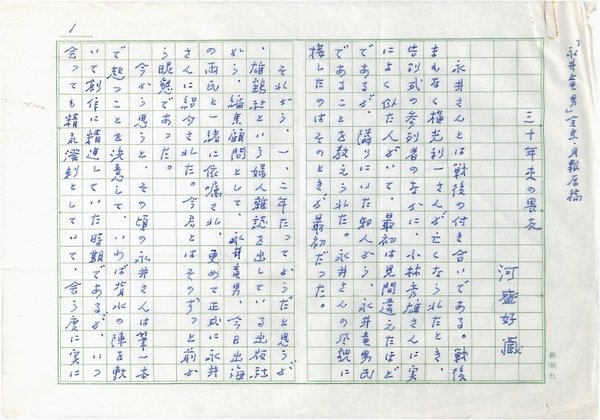 「永井龍男」全集・月報原稿
三十年来の畏友
河盛好蔵
永井さんとは戦後の付き合いである。戦後
まもなく横光利一さんが亡くなられたとき、
告別式の参列者のなかに、小林秀雄さんに実
によく似た人がいて、最初は見間違えたほど
であるが、隣りにいた知人から、永井龍男氏
であることを教えられた。永井さんの風貌に
接したのはそのときが最初だった。
それから一、二年たってからだと思うが
、雄鶏社という婦人雑誌を出している出版社
から、編集顧問として、永井龍男、今日出海
の両氏と一緒に依嘱され、更めて正式に永井
さんに紹介された。今君とはそのずっと前か
ら昵懇であった。
今から思うと、その頃の永井さんは筆一本
で起つことを決意して、いわば背水の陣を敷
いて創作に精進していた時期であるが、いつ
会っても精気溌剌としていて、会う度に実に
1
新潮社